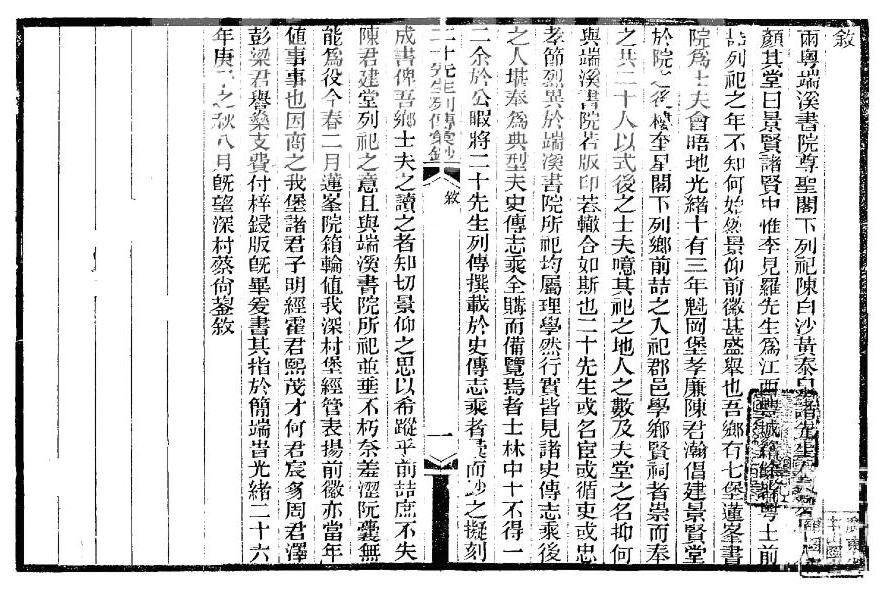 敘
兩粵端溪書院尊聖閣下列祀陳白沙黃泰泉諸先生
顏其堂曰景賢諸賢中惟李見羅先生為江西豐城籍餘皆粵士前
喆列祀之年不知何始然景仰前徽甚盛舉也吾鄉有七堡蓮峯書
院為士夫會晤地光緒十有三年魁岡堡孝廉陳君瀚倡建景賢堂
於院之後樓奎星閣下列鄉前喆之入祀郡邑學鄉賢祠者崇而奉
之共二十人以式後之士夫噫其祀之地人之數及夫堂之名抑何
與端溪書院若版印若轍合如斯也二十先生或名宦或循吏或忠
孝節烈異於端溪書院所祀均屬理學然行實皆見諸史傳志乘後
之人堪奉為典型夫史傳志乘全購而備覽焉者士林中十不得一
二余於公暇將二十先生列傳撰載於史傳志乘者彙而抄之擬刻
二十先生列傳彙鈔
敘
一
成書俾吾鄉士夫之讀之者知切景仰之思以希蹤乎前喆庶不失
陳君建堂列祀之意且與端溪書院所祀並垂不朽奈羞澀阮囊無
能為役今春二月蓮峯院箱輪値我深村堡經管表揚前徽亦當年
値事事也因商之我堡諸君子明經霍君熙茂才何君宸豸周君澤
彭梁君譽燊支費付梓鋟版旣畢爰書其指於簡端旹光緒二十六
年庚子之秋八月旣望深村蔡尙鋆敘